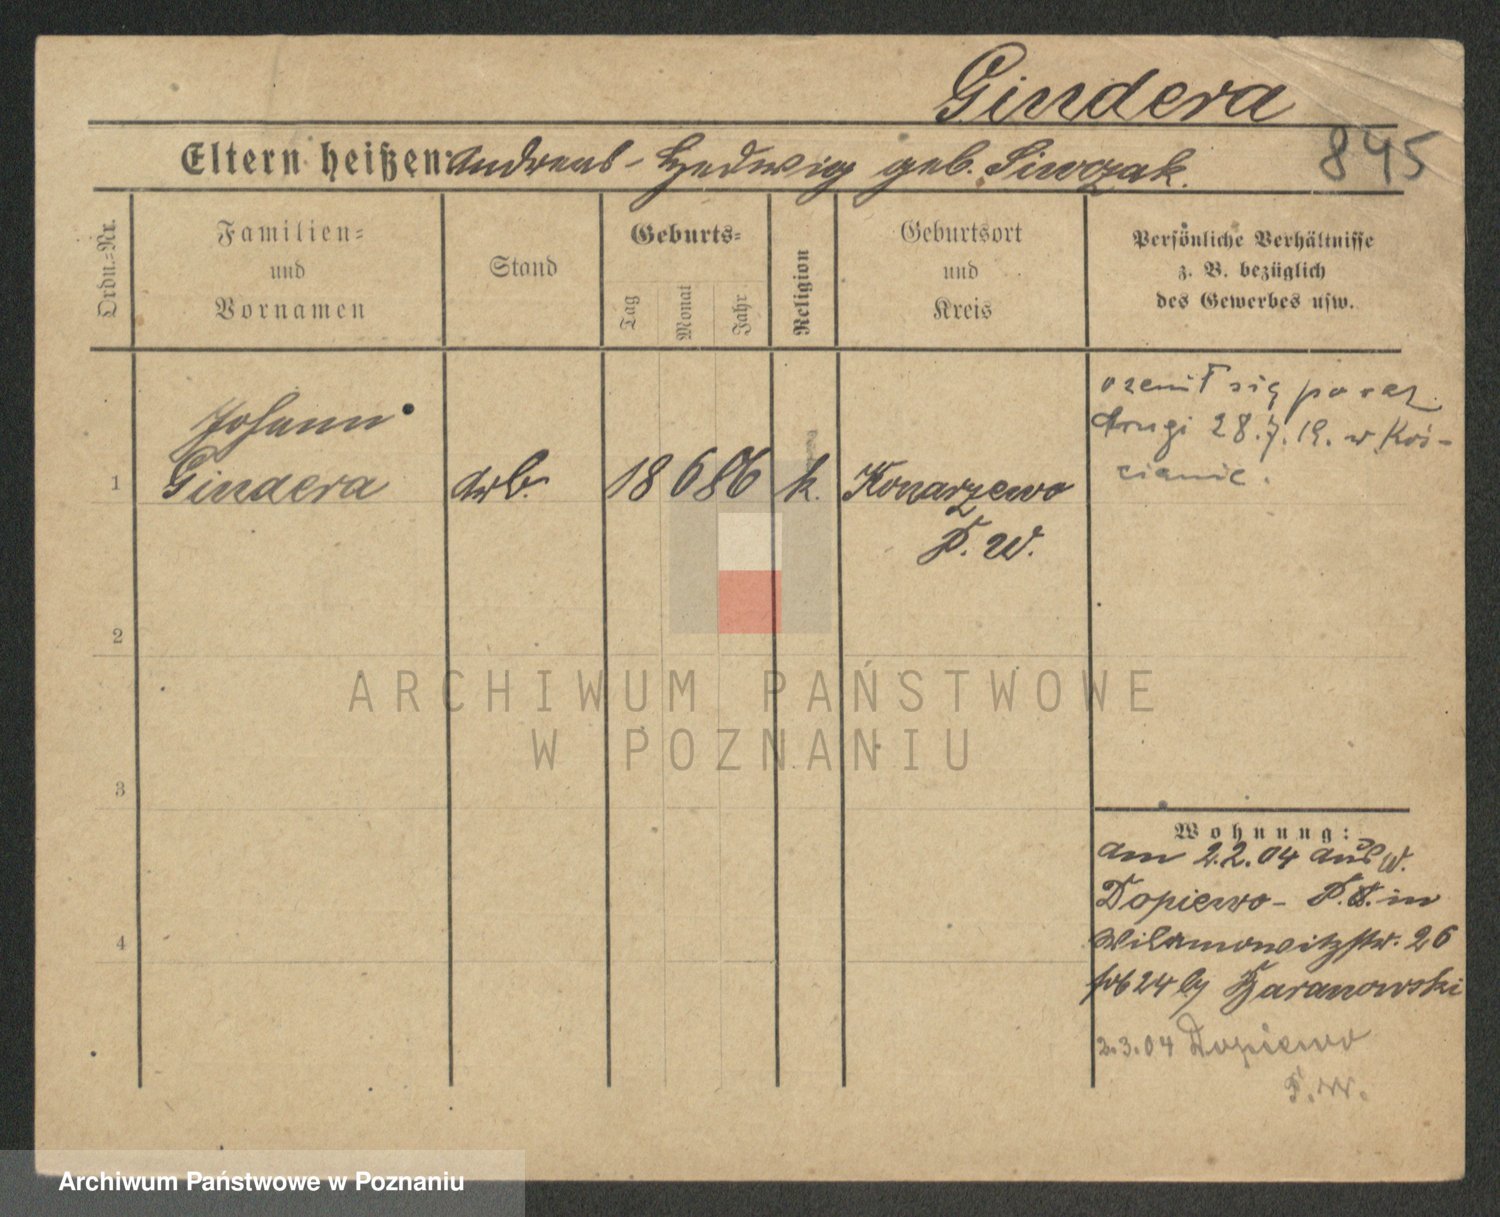 Gindera
845
Eltern heißen: Andreas - Hedwig geb. Siwczak.
Ordn.=Nr.
Familien=
und
Vornamen
Stand
Geburts=
Tag
Monat
Jahr
Religion
Geburtsort
und
Kreis
Persönliche Verhältnisse
z. B. bezüglich
des Gewerbes usw.
1
Johann
Gindera
Arb.
18 6 86
k.
Konarzewo
P. W.
ożenił się po raz
drugi 28.7.19. w Koś-
cianie.
2
3
4
Wohnung:
am 2.2.04 aus W.
Dopiewo - P. W. in
Wilamowitzstr. 26
24 Haranowski
2.3.04 Dopiewo
P. W.
ARCHIWUM PAŃSTWOWE
W POZNANIU
Archiwum Państwowe w Poznaniu